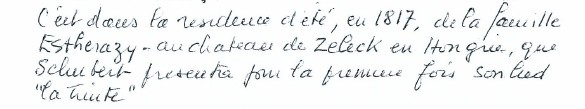 C'est dans la résidence d'été, en 1817, de la famille
Estherazy - au chateau de Zeleck en Hongrie, que
Schubert presenta pour la premiere fois son lied
"la Truite"